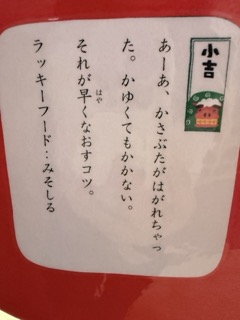 小吉
あーあ、かさぶたがはがれちゃっ
た。かゆくてもかかない。
それが早くなおすコツ。
はや
ラッキーフード：みそしる